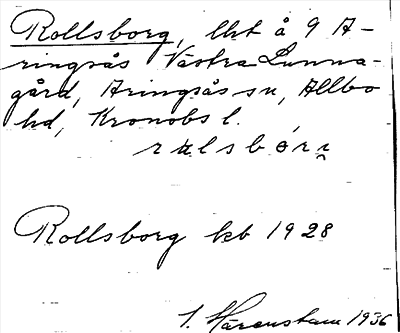 Rollsborg, lht å 9 A-
ringsås Västra Lunna-
gård, Aringsås sn, Allbo
hd, Kronobs l.
rålsbórn
Rollsborg kb 1928
I. Härenstam 1936